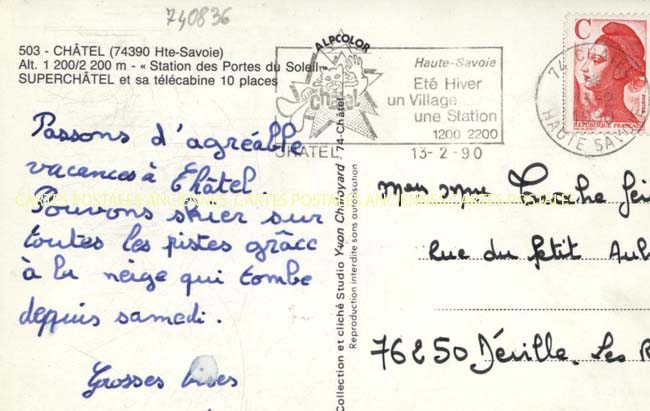 740836
503 - CHÂTEL (74390 Hte-Savoie)
Alt. 1 200/2 200 m - « Station des Portes du Soleil
SUPERCHÂTEL et sa télécabine 10 places
Passons d'agréable
vacances à Châtel.
Pouvons skier sur
toutes les pistes grâce
à la neige qui tombe
depuis samedi.
Grosses bises
ALPCOLOR
Châtel
CHATEL
Haute-Savoie
Eté Hiver
un Village
une Station
1200 2200
13-2-90
C
REPUBLIQUE FRANÇAISE
74 CHATEL
HAUTE SAVOIE
Collection et cliché Studio Yvon Charoyard - 74-Châtel
Reproduction interdite sans autorisation
CARTES POSTALES ANCIENNES CARTES POSTALES ANCIENNES CARTES POSTALES
Rue du Petit
76250 Déville. Les